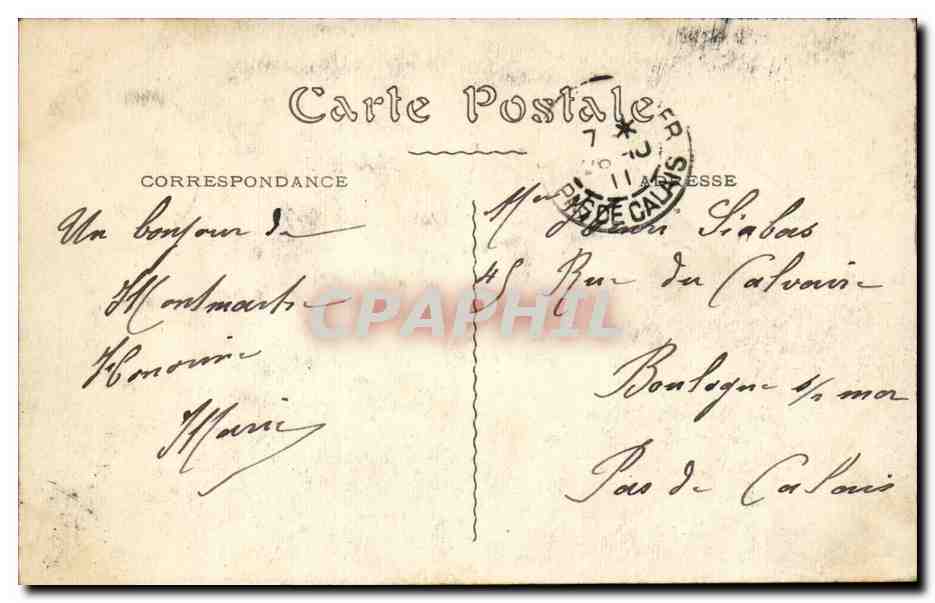 Carte Postale
CORRESPONDANCE
ADRESSE
Un bonjour de
Montmartre
Honorine
Marie
Henri Siabas
45 Rue du Calvaire
Boulogne s/ mer
Pas de Calais
7 *
11
PAS DE CALAIS
CPAPHIL